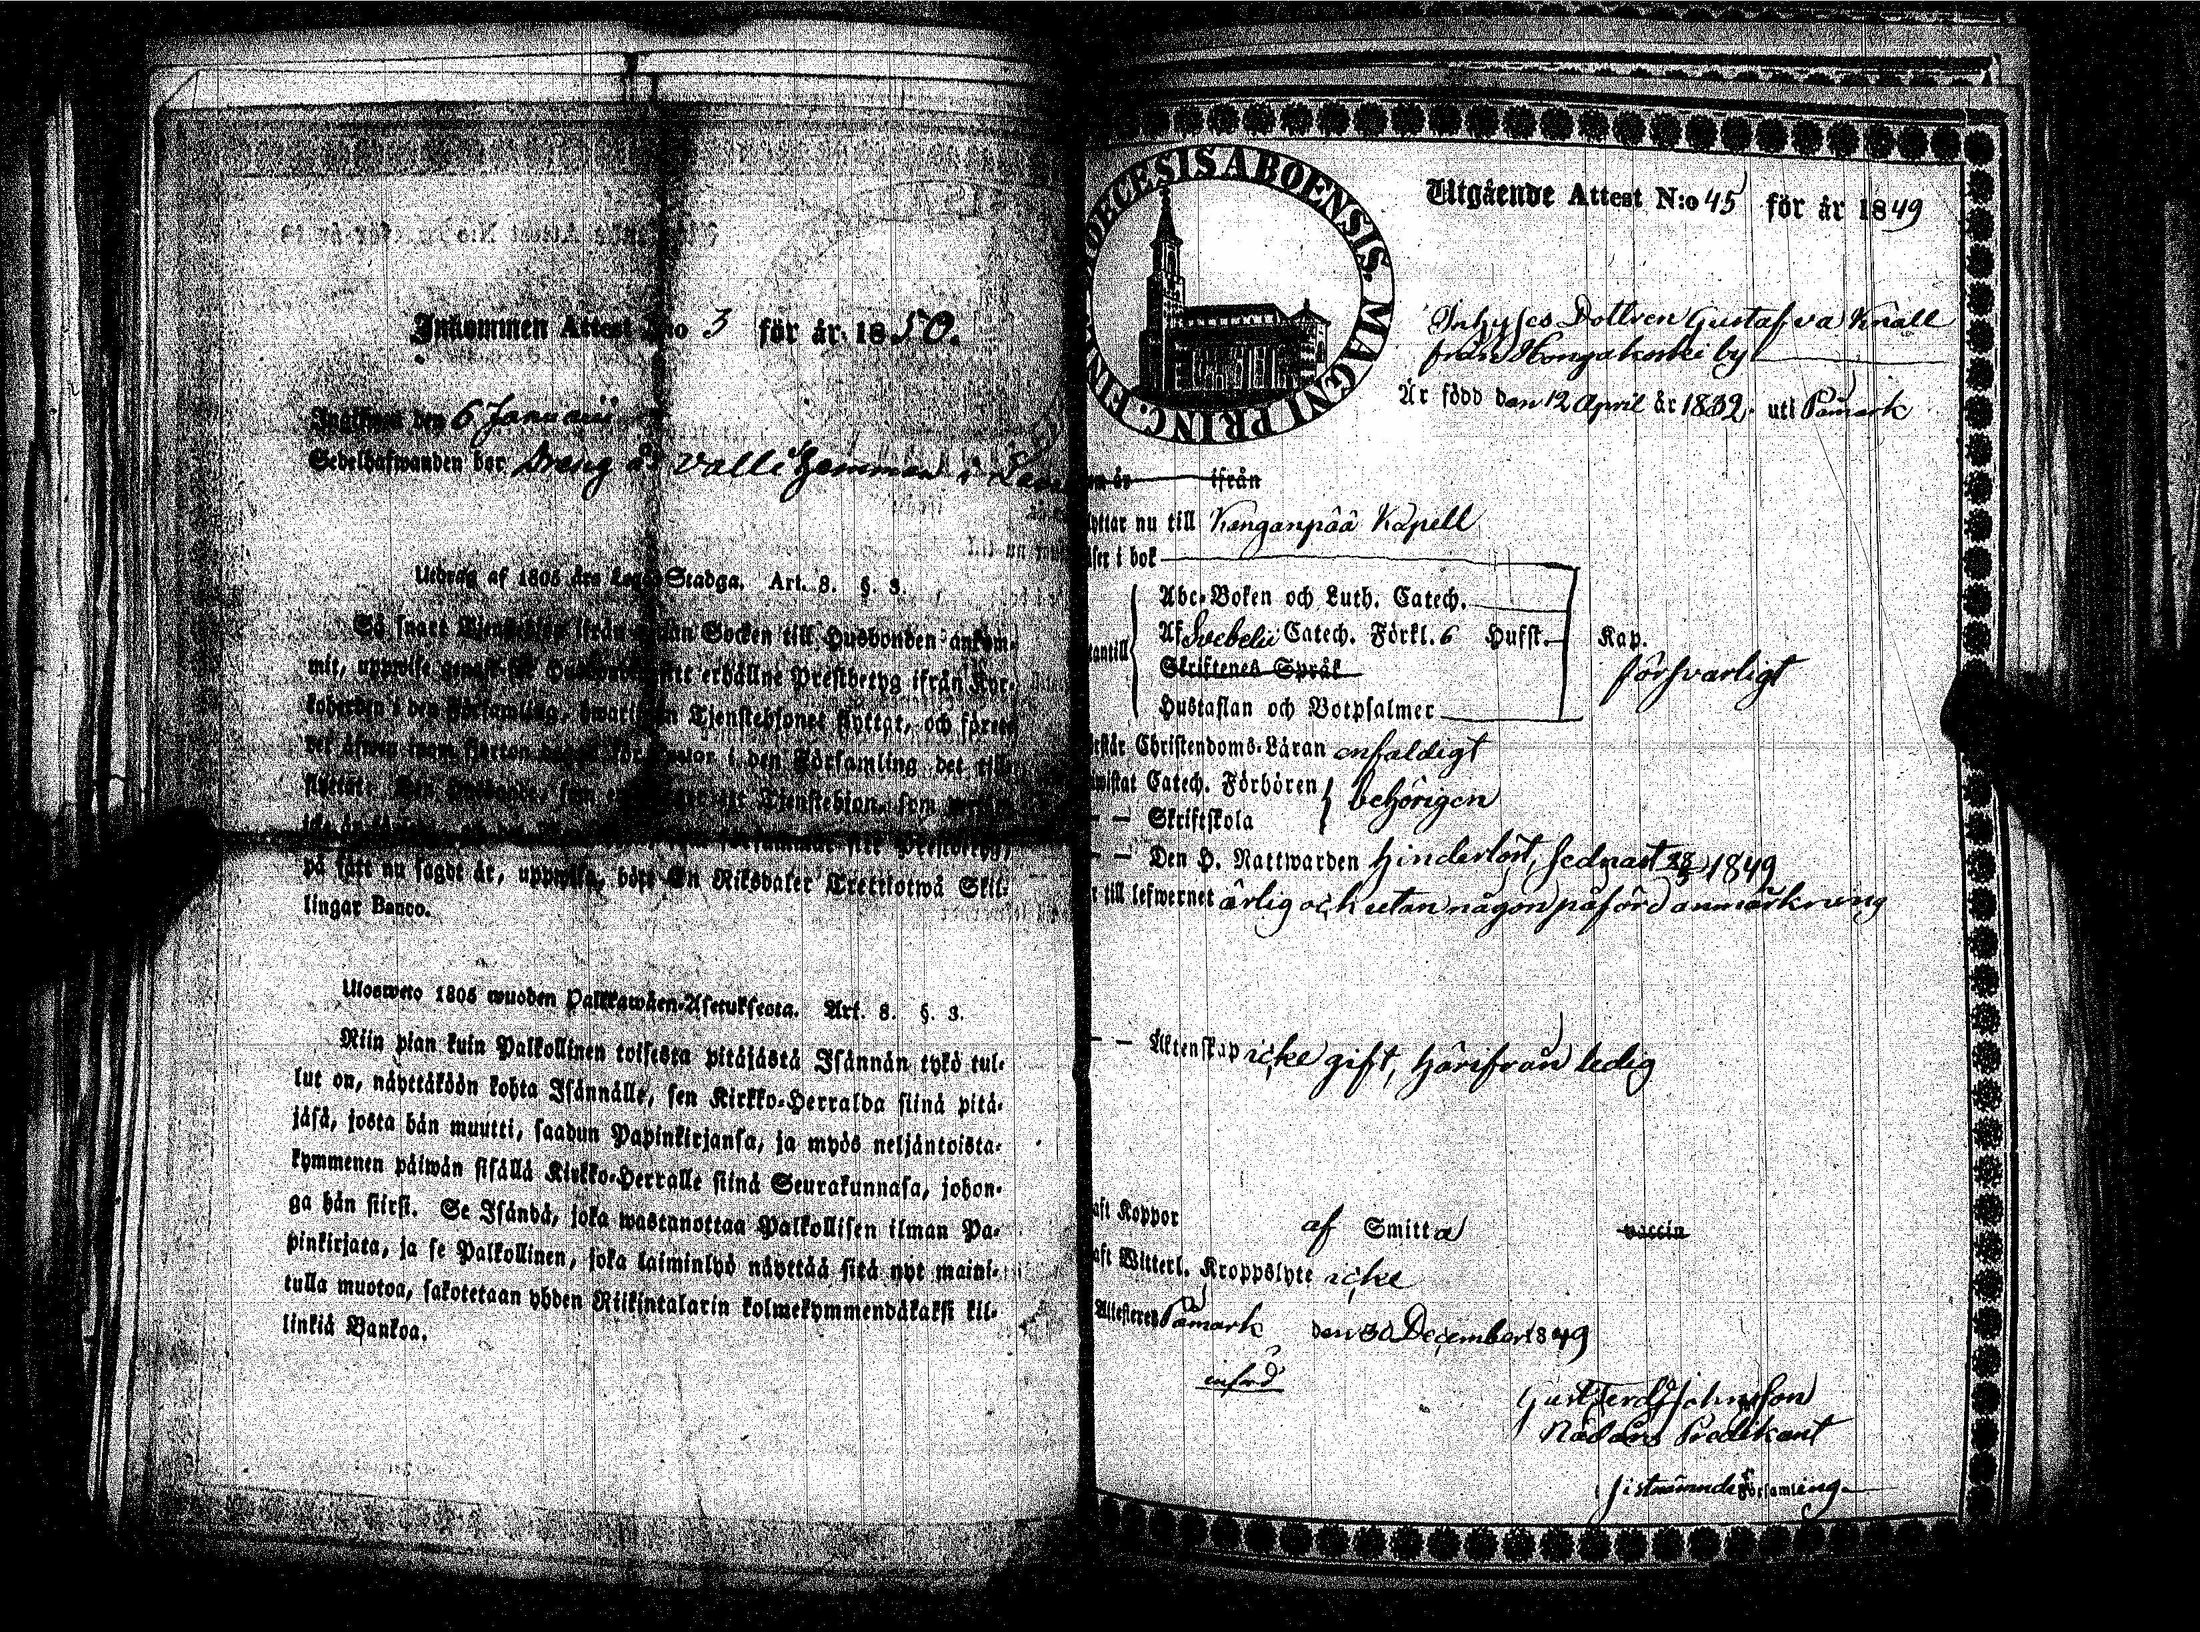 Inkommen Attest N:o 3 för år 1850.
Ingifwen den 6 Januarii
Sedelhafwanden bor Dreng å Valli hemman i
Utdrag af 1805 års Lego-Stadga. Art. 8. §. 3.
Så snart Tjenstehjon ifrån annan Socken till Husbonden ankom-
mit, uppwise genast för Husbonden sitt erhållne Prestbetyg ifrån Kyr-
koherden i den Församling, hwarifrån Tjenstehjonet flyttat, och förete
det äfwen inom fjorton dagar för Pastor i den Församling det till-
flyttat. Den Husbonde, som emottager ett Tjenstehjon, som
Prestbetyg,
på sätt nu sagdt är, uppwisa, böte En Riksdaler Trettiotwå Skil-
lingar Banco.
Ulosweto 1805 wuoden Palkkawäen-Asetuksesta. Art. 8. §. 3.
Niin pian kuin Palkollinen toisesta pitäjästä Isännän tykö tul-
lut on, näyttäköön kohta Isännälle, sen Kirkko-Herralda siinä pitä-
jäsä, josta hän muutti, saadun Papinkirjansa, ja myös neljäntoista-
kymmenen päiwän sisällä Kirkko-Herralle siinä Seurakunnasa, johon-
ga hän siirsi. Se Isändä, joka wastanottaa Palkollisen ilman Pa-
pinkirjata, ja se Palkollinen, joka laiminlyö näyttää sitä nyt maini-
tulla muotoa, sakotetaan yhden Riikintalarin kolmekymmendäkaksi kil-
linkiä Bankoa.
DIOECESIS ABOENSIS. MAGNI PRINC. FINL.
Utgående Attest N:o 45 för år 1849
Inhyses Dottren Gustafva Knall
från Hongakoski by
Är född den 12 April år 1832. uti Påmark
ifrån
flyttar nu till Kangånpää Kapell
läser i bok
Abc-Boken och Luth. Catech.
Af Svebelii Catech. Förkl. 6 Hufst. Kap.
utantill Skriftenes Språk försvarligt
Hustaflan och Botpsalmer
förstår Christendoms-Läran enfaldigt
bewistat Catech. Förhören behörigen
— — Skriftskola
— — Den H. Nattwarden hinderlöst, sednast 1849
är till lefwernet ärlig och utan någon påförd anmärkning
— — Äktenskap icke gift, härifrån ledig
haft Koppor af Smitta vaccin
haft Witterl. Kroppslyte icke
Attesteren Påmark den 30 December 1849
införd
Gust Ferd Johnsson
Nådårs Predikant
sistnämnde Församling